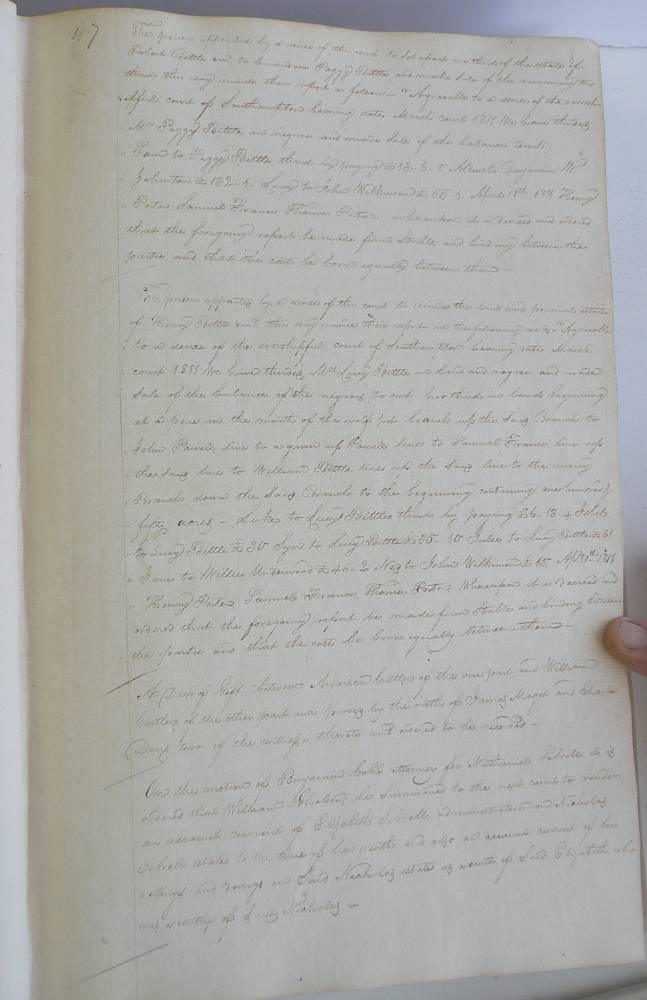 47
The persons appointed by a decree of this court to set apart one third of the estate of
Robert Bittle and to his widow Peggy Bittle and make sale of the remaining two
thirds this day made their report as follows "Agreeable to a decree of the worship
court of Southampton bearing date March court 1811 We have thirded
Mrs Peggy Bittle in negroes and made Sale of the balance towit
to Peggy Bittle third by paying £13-6-8 Allen to Benjamin W
Johnston £132-1- Lucy to John Wilkinson £66 1 April 18th 1811 Henry
Porter Samuel Francis Thomas Porter whereupon it is decreed and ordered
that the foregoing report be made firm Stable and binding between the
parties and that the cost be born equally between them
The persons appointed by a decree of this court to divide the land and personal estate
of Henry Bittle this day made their report in the following words "Agreeable
to a decree of the worshipful court of Southampton bearing date March
court 1811 We have thirded Mrs Lucy Bittle in land and negroes and made
Sale of the balance of the negroes, to wit, her thirds in lands beginning
at a pine in the mouth of the wolf pit branch up the said Branch to
John Powell, line to a gum up Powells line to Samuel Francis, line up
the said line to William Bittle line up the Said line to the miery
Branch down the Said Branch to the beginning containing one hundred &
fifty acres – Luke to Lucy Bittles thirds by paying £6-13-4
to Lucy Bittle £30 to Lucy Bittle £55-10 to Lucy Bittle
Jane to Willie Underwood £46-2 Ned to John Wilkinson April 18th 1811
Henry Porter, Samuel Francis, Thomas Porter, Whereupon it is decreed and
ordered that the foregoing report be made firm Stable and binding between
the parties and that the cost be born equally between them –
A Deed of Gift between America Cuttler of the one part and William
Cuttler of the other part was proved by the oaths of James Maget and Charles
two of the witnesses thereto and ordered to be recorded –
On the motion of Benjamin Cobb attorney for Nathaniel Sebrell it is
ordered that William Nicholson, be Summoned to the next court to render
an account current of Elizabeth Sebrell, administration on Nicholas
Sebrells estate to the time of her death and also an account current of his
actings and doings on Said Nicholas estate as executor of Said Elizabeth who
was executrix of Said Nicholas –